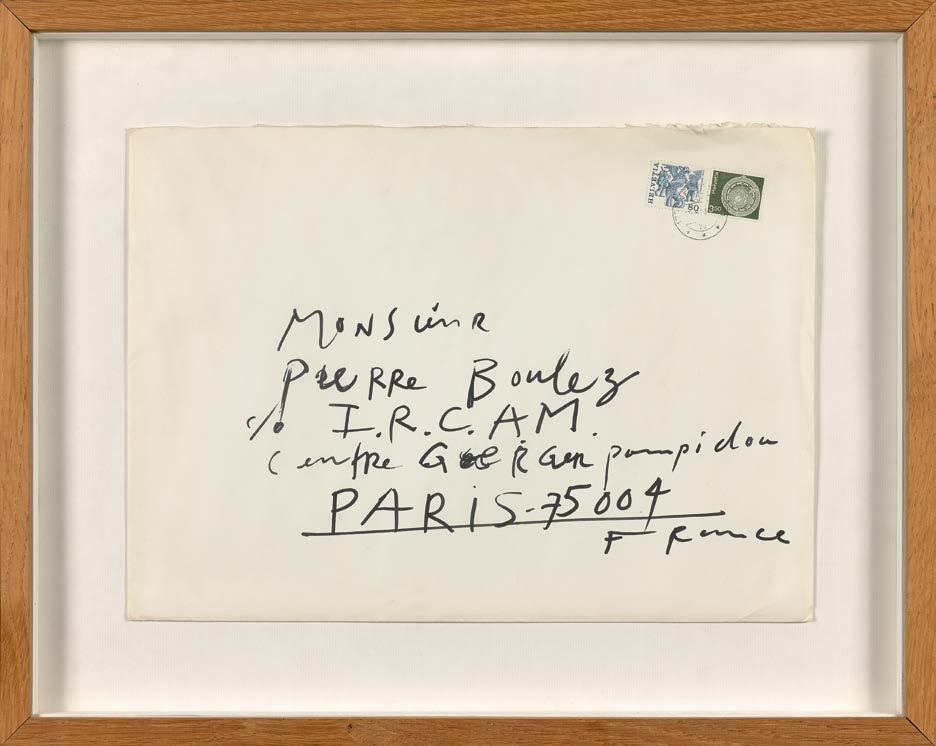 HELVETIA
80
HELVETIA
350
Monsieur
Pierre Boulez
c/o I.R.C.A.M.
Centre pompidou
PARIS-75004
France